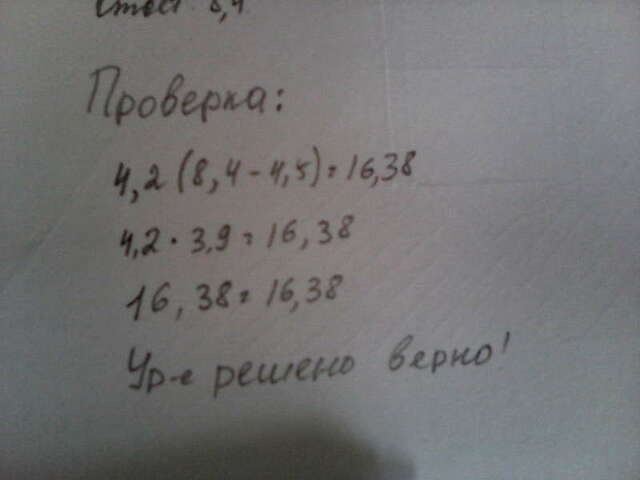 Проверка:
4,2(8,4-4,5)=16,38
4,2·3,9=16,38
16,38=16,38
Ур-е решено верно!